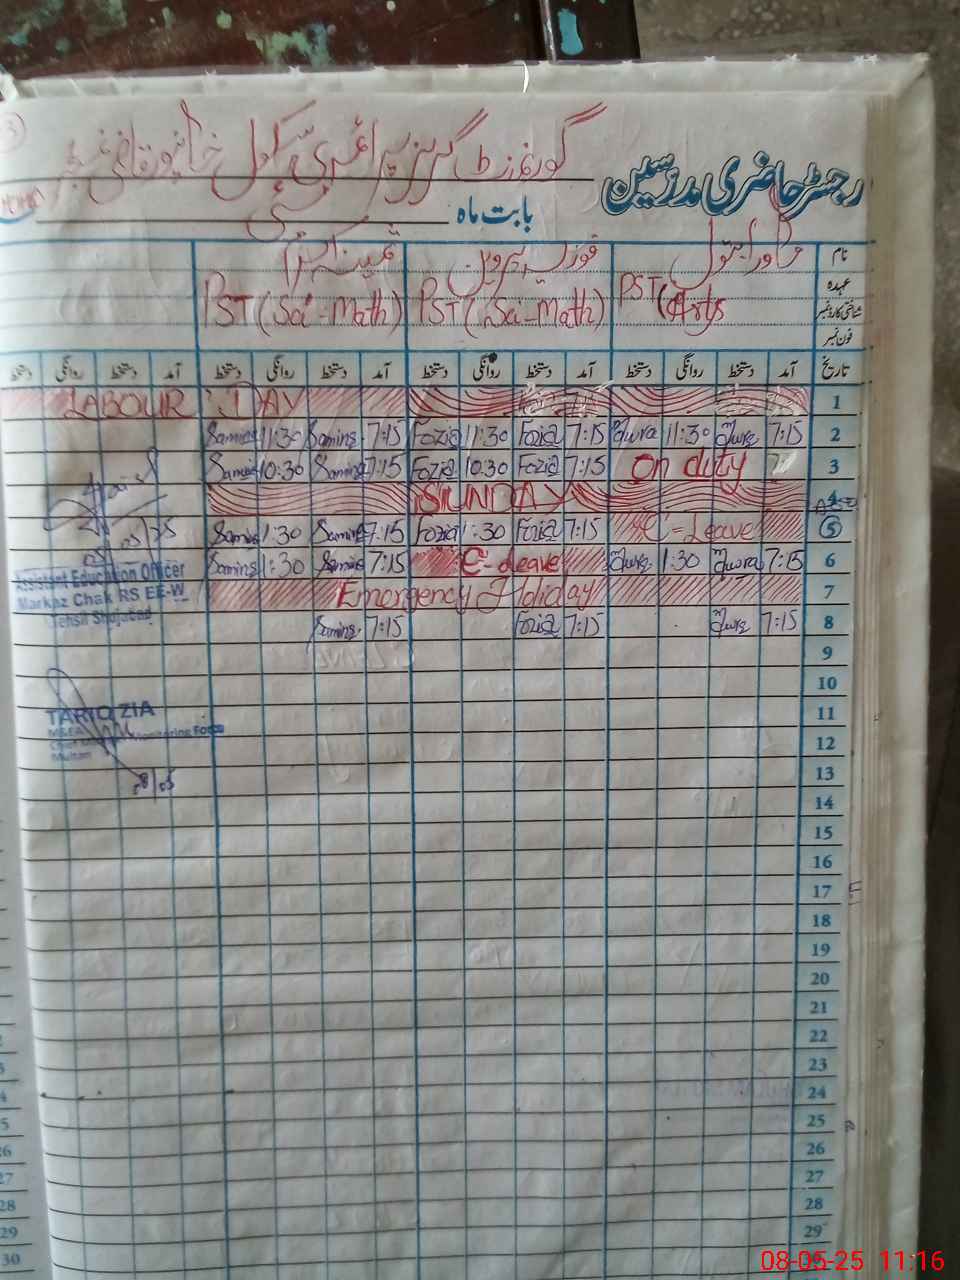 گورنمنٹ گرلز پرائمری سکول خانپور قاضی نمبر
رجسٹر حاضری مدرسین
بابت ماہ مئی
نام
ثمینہ فوزیہ پروین بتول
عہدہ
شناختی کارڈ نمبر
فون نمبر
PST (Sci-Math) PST (Sci-Math) PST (Arts
تاریخ آمد دستخط روانگی دستخط آمد دستخط روانگی دستخط آمد دستخط روانگی دستخط آمد دستخط روانگی دستخط
LABOUR DAY 1
11:30 7:15 Fozia 11:30 Fozia 7:15 11:30 7:15 2
10:30 7:15 Fozia 10:30 Fozia 7:15 On duty 3
SUNDAY 4
1:30 7:15 Fozia 1:30 Fozia 7:15 C-Leave 5
1:30 7:15 C-Leave 1:30 7:15 6
Emergency Holiday 7
7:15 Fozia 7:15 7:15 8
05/05/25
Assistant Education Officer
Markaz Chak RS EE-W
Tehsil Shujabad
9
10
TARIQ ZIA
MSEA
Monitoring Force
Multan
08/05
11
12
13
14
15
16
17
18
19
20
21
22
23
24
25
26
27
28
29
08-05-25 11:16